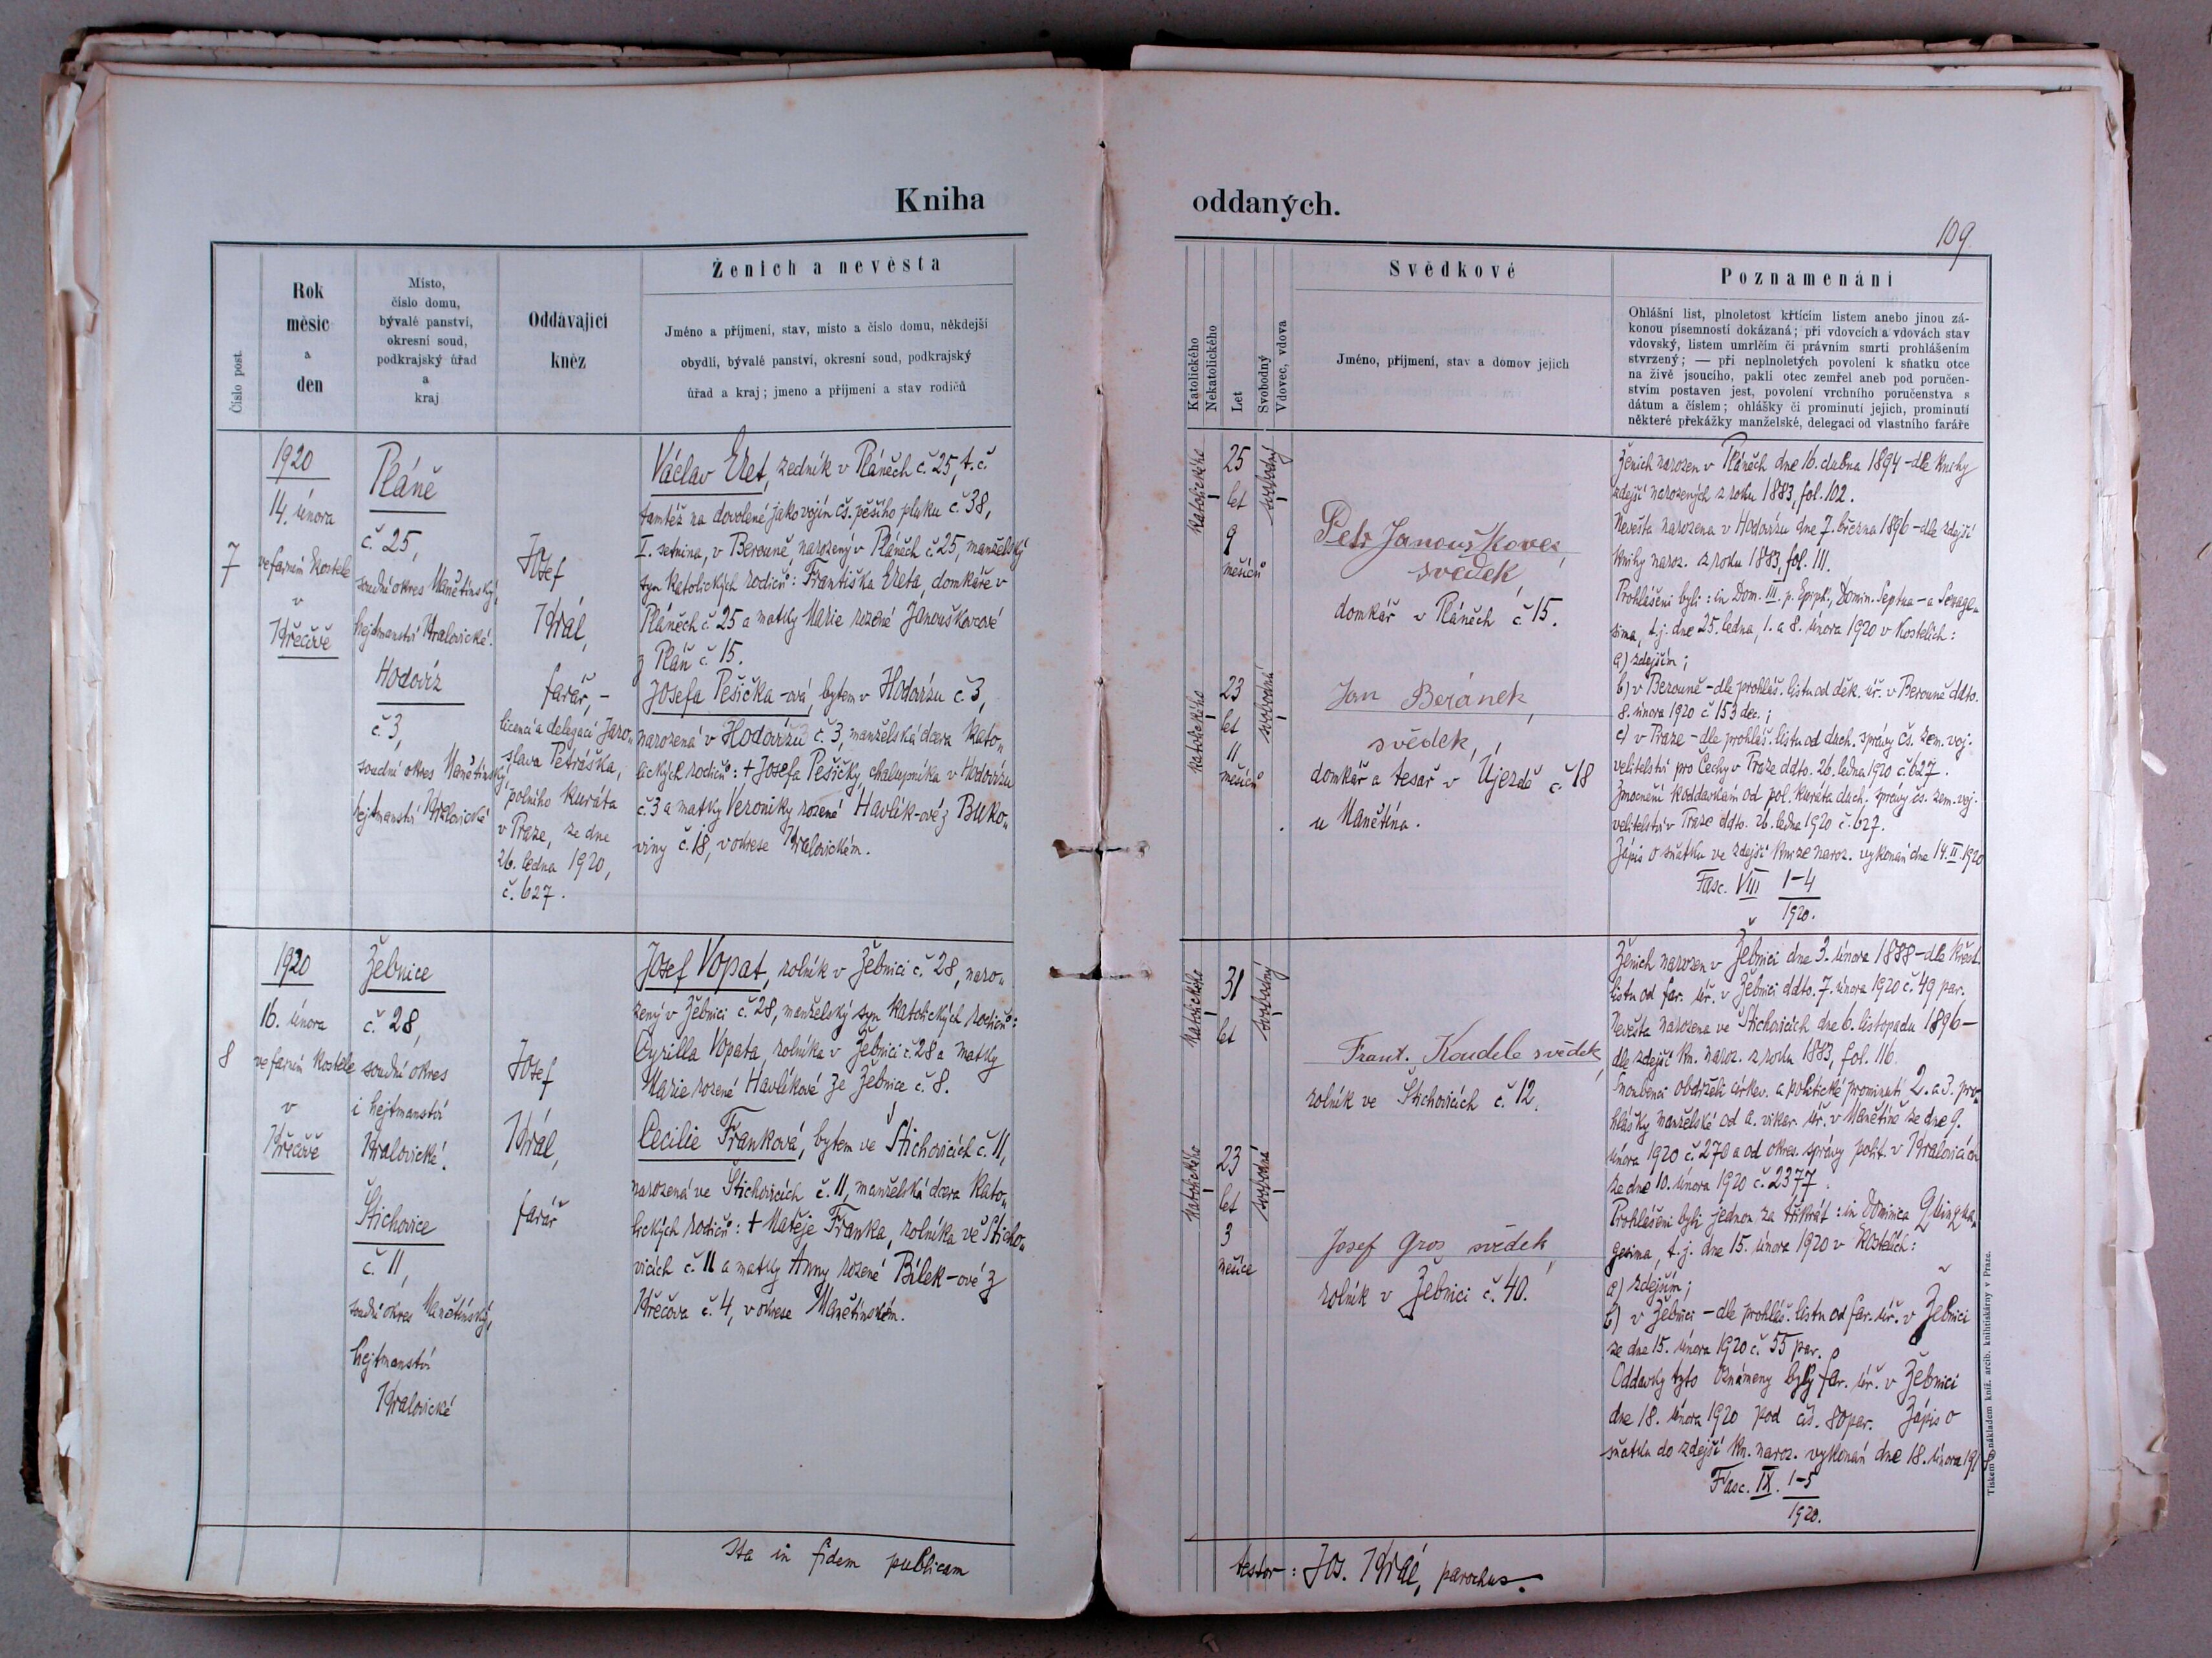 Kniha
oddaných.
109
Číslo post.
Rok
měsíc
a
den
Místo,
číslo domu,
bývalé panství,
okresní soud,
podkrajský úřad
a
kraj
Oddávající
kněz
Ženich a nevěsta
Jméno a příjmení, stav, místo a číslo domu, někdejší
obydlí, bývalé panství, okresní soud, podkrajský
úřad a kraj; jmeno a příjmení a stav rodičů
Katolického
Nekatolického
Let
Svobodný
Vdovec, vdova
Svědkové
Jméno, příjmení, stav a domov jejich
Poznamenání
Ohlášní list, plnoletost křticím listem anebo jinou zá-
konou písemností dokázaná; při vdovcích a vdovách stav
vdovský, listem umrlčím či právním smrti prohlášením
stvrzený; — při neplnoletých povolení k sňatku otce
na živě jsoucího, pakli otec zemřel aneb pod poručen-
stvím postaven jest, povolení vrchního poručenstva s
dátum a číslem; ohlášky či prominutí jejich, prominutí
některé překážky manželské, delegací od vlastního faráře
7
1920
14. února
ve farním kostele
v
Křečově
Pláně
č. 25,
soudní okres Manětínský,
hejtmanství Kralovické.
Hodovíz
č. 3,
soudní okres Manětínský,
hejtmanství Kralovické
Josef
Král,
farář, –
licencí a delegací Jaro„
slava Petráška,
polního kuráta
v Praze, ze dne
26. ledna 1920,
č. 627.
Václav Eret, zedník v Pláněch č. 25, t. č.
tamtéž na dovolené jako vojín čs. pěšího pluku č. 38,
I. setnina, v Berouně, narozený v Pláněch č. 25, manželský
syn katolických rodičů: Františka Ereta, domkáře v
Pláněch č. 25 a matky Marie rozené Janouškovcové
z Plán č. 15.
Josefa Pešička-ová, bytem v Hodovízu č. 3,
narozená v Hodovízu č. 3, manželská dcera kato„
lických rodičů: + Josefa Pešičky, chalupníka v Hodovízu
č. 3 a matky Veroniky rozené Havlík-ové z Buko„
viny č. 18, v okrese Kralovickém.
katolického
25
let
9
měsíců
svobodný
katolického
23
let
11
měsíců
svobodná
Petr Janouškovec,
svědek,
domkář v Pláněch č. 15.
Jan Beránek,
svědek,
domkář a tesař v Újezdě č. 18
u Manětína.
Ženich narozen v Pláněch dne 16. dubna 1894 – dle knihy
zdejší narozených z roku 1883, fol. 102.
Nevěsta narozena v Hodovízu dne 7. března 1896 – dle zdejší
knihy naroz. z roku 1883, fol. 111.
Prohlášeni byli: in Dom. III. p. Epiph., Domin. Septua- a Sexage„
sima, t. j. dne 25. ledna, 1. a 8. února 1920 v kostelích:
a) zdejším;
b) v Berouně – dle prohláš. listu od děk. úř. v Berouně ddto.
8. února 1920 č. 153 dec.;
c) v Praze – dle prohláš. listu od duch. správy čs. zem. voj.
velitelství pro Čechy v Praze ddto. 26. ledna 1920 č. 627.
Zmocnění k oddavkám od pol. kuráta duch. správy čs. zem. voj.
velitelství v Praze ddto. 26. ledna 1920 č. 627.
Zápis o sňatku ve zdejší knize naroz. vykonán dne 14. II. 1920
Fasc. VIII 1–4
1920.
8
1920
16. února
ve farním kostele
v
Křečově
Žebnice
č. 28,
soudní okres
i hejtmanství
Kralovické.
Štichovice
č. 11,
soudní okres Manětínský,
hejtmanství
Kralovické
Josef
Král,
farář
Josef Vopat, rolník v Žebnici č. 28, naro„
zený v Žebnici č. 28, manželský syn katolických rodičů:
Cyrilla Vopata, rolníka v Žebnici č. 28 a matky
Marie rozené Havlíkové ze Žebnice č. 8.
Cecilie Franková, bytem ve Štichovicích č. 11,
narozená ve Štichovicích č. 11, manželská dcera kato„
lických rodičů: + Matěje Franka, rolníka ve Šticho„
vicích č. 11 a matky Anny rozené Bílek-ové z
Křečova č. 4, v okrese Manětínském.
katolického
31
let
svobodný
katolického
23
let
3
měsíce
svobodná
Frant. Koudele svědek,
rolník ve Štichovicích č. 12.
Josef Gros, svědek,
rolník v Žebnici č. 40.
Ženich narozen v Žebnici dne 3. února 1888 – dle křest.
listu od far. úř. v Žebnici ddto. 7. února 1920 č. 49 par.
Nevěsta narozena ve Štichovicích dne 6. listopadu 1896 –
dle zdejší kn. naroz. z roku 1883, fol. 116.
Snoubenci obdrželi církev. a politické prominutí 2. a 3. pro„
hlášky manželské od a. vikar. úř. v Manětíně ze dne 9.
února 1920 č. 270 a od okres. správy polit. v Kralovicích
ze dne 10. února 1920 č. 2377.
Prohlášeni byli jednou za třikrát: in Dominica Quinqua„
gesima, t. j. dne 15. února 1920 v kostelích:
a) zdejším;
b) v Žebnici – dle prohláš. listu od far. úř. v Žebnici
ze dne 15. února 1920 č. 55 par.
Oddavky tyto oznámeny byly far. úř. v Žebnici
dne 18. února 1920 pod čís. 80 par. Zápis o
sňatku do zdejší kn. naroz. vykonán dne 18. února
Fasc. IX. 1–5
1920.
Ita in fidem publicam
testor: Jos. Král, parochus.
Tiskem a nákladem kníž. arcib. knihtiskárny v Praze.